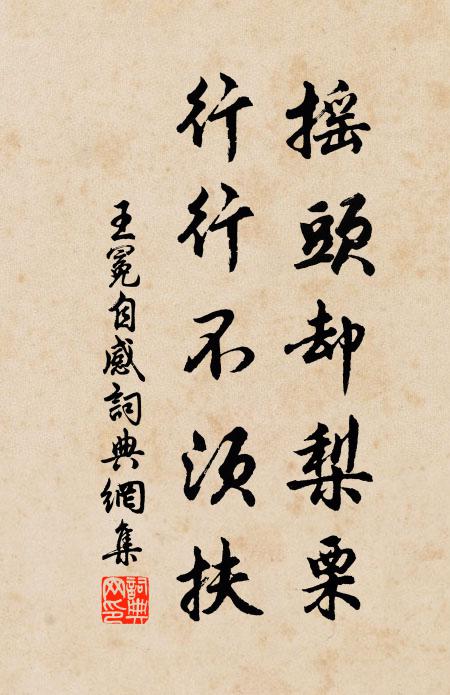 搖頭却梨栗
行行不須扶
王冕自感詞典網集
詞典網印